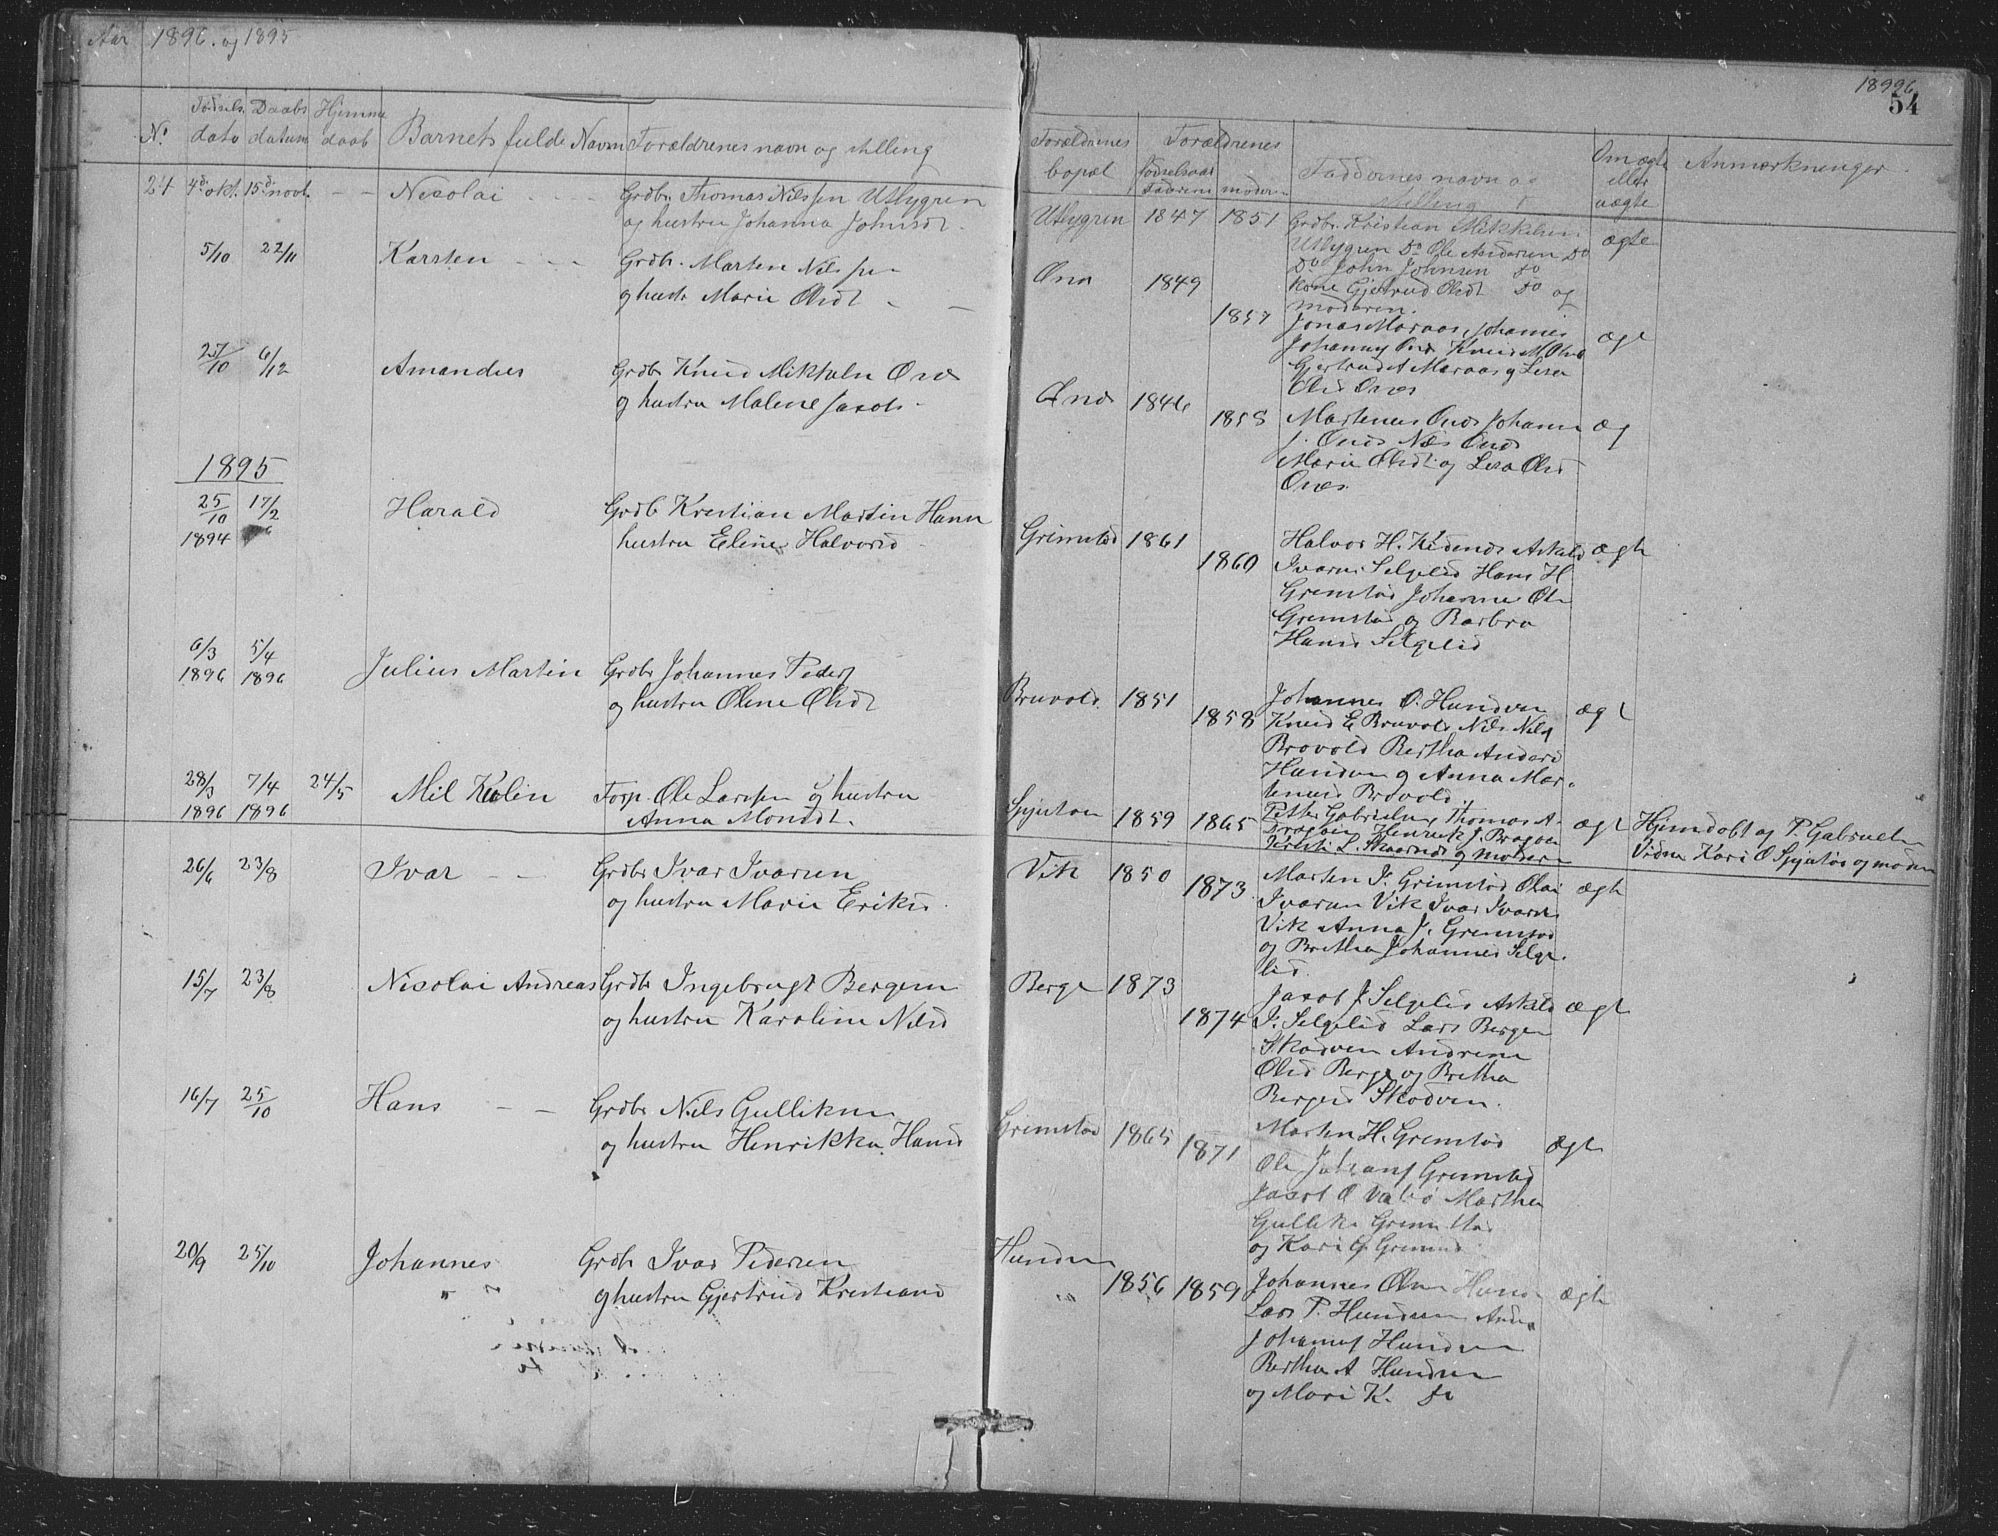 Aar 1896. og 1895
1896
54
No Fødsels dato Daabs datum Hjemme daab Barnets fulde Navn Forældrenes navn og stilling
Forældrenes bopæl Forældrenes fødselsaar faderens moderens Faddernes navn og stilling Om ægte eller uægte Anmærkninger
24 4de okt. 15de novb. — — Nicolai Grdbr Thomas Nilssen Utlygren
og hustru Johanna Johnsdt.
Utlygren 1847 1851 Grdbr. Kristian Mikkelsen ægte
Utlygren Do Ole Andersen Do
Do John Johnsen Do
kone Gjertrud Olsdt Do og
moderen.
5/10 22/11 Karsten Grdb. Marten Nilssen
og hustr Marie Olsdt
Ønes 1849 1857 Jonas Maraas, Johannes ægt
Johannes Knud M.
Gjertrud A Maraas og Lisa
Olsd Ønes
27/10 6/12 Amandus Grdbr Knud Mikkelsn
og hustru Malene Jacobs
1846 1858 Martenus Johann æg
Marie Olsdt. og Lisa Olsd
Ønes.
1895
25/10 1894 17/2 Harald Grdb Kristian Martin Hans
hustru Eline Halvorsd
Grimstad 1861 1860 Halvor H. Askeld ægt
Ivarsen Selgelid Hans H
Grimstad Johanne Ols
Grimstad og Barbro
Hansd Selgelid
6/3 1896 5/4 1896 Julius Martin Grdbr Johannes Peders
og hustru Oline Olsdt
Bruvold. 1851 1858 Johannes O. Hundven ægt
Knud E Bruvold Nils Nils
Brovold Bertha Andersd
Hundven og Anna Mar-
tensd Brovold.
28/3 1896 7/4 1896 24/5 Mil Kolin Forp. Ole Larssen og hustru
Anna Monsdt.
1859 1865 Petter Gabrielsen, Thomas A. ægt Hjemdøbt og P. Gabriels
Henrik J.
L. og moderen Vidne Kari O og moderen
26/6 23/8 Ivar — — Grdbr Ivar Ivarsen
og hustru Marie Eriksd.
Vik 1850 1873. Marten J. Grimstad Olai ægt
Ivarsen Vik Ivar Ivarsen
Vik Anna J. Grimstad
og Bretha Johannes Selge-
lid.
15/7 23/8 Nicolai Andreas Grdbr Ingebrigt Bergesen
og hustru Karoline Nilsd
Berge 1873 1874 Jacob J Selgelid Askeld ægt
J. Selgelid Lars Bergen
Skodven Andrene
Olsd Berge og Bretha
Bergesd Skodven.
16/7 25/10 Hans — — Grdbr Nils Gulliksen
og hustru Henrikka Hansd
Grimstad 1865 1871 Marten H. Grimstad ægt
Ole Johans Grimstad
Jacob O Martha
Gulliks Grimstad
og Kari G Grimsd
20/9 25/10 Johannes Grdb Ivar Pedersen
og hustru Gjertrud Kristiansd
Hundven 1856 1859 Johannes Olsen Hund ægt
Lars P. Hundven
Johannes Hundven
Bertha A Hundven
og Mari K. Do